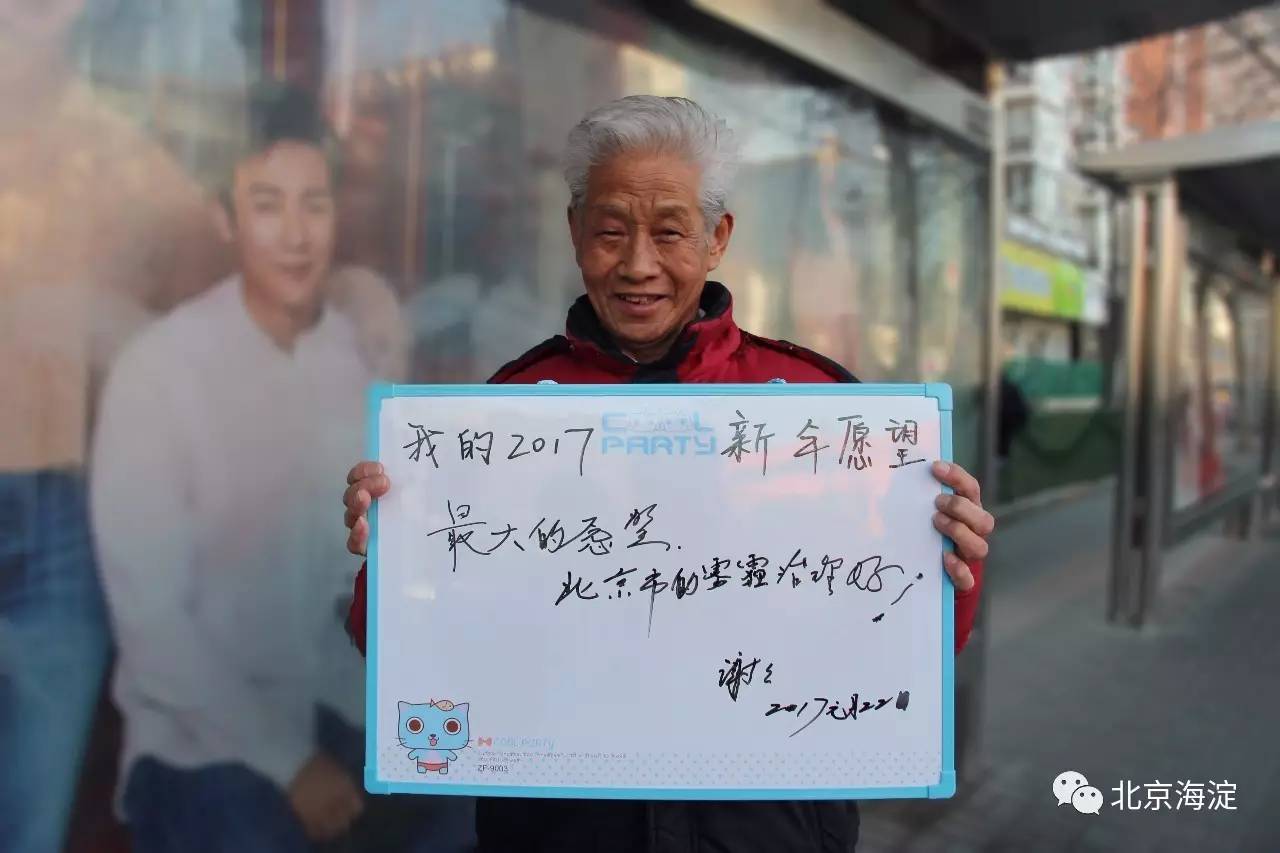 我的2017 COOL PARTY 新年愿望
最大的愿望.
北京市的雾霾治理好!
谢谢
2017元月22日
COOL PARTY
ZF-9003
北京海淀